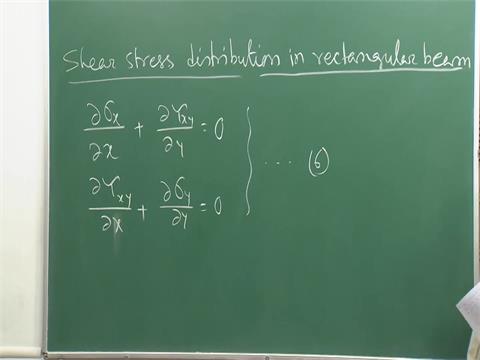 Shear stress distribution in rectangular beam
∂σx/∂x + ∂τxy/∂y = 0
... (6)
∂τxy/∂x + ∂σy/∂y = 0